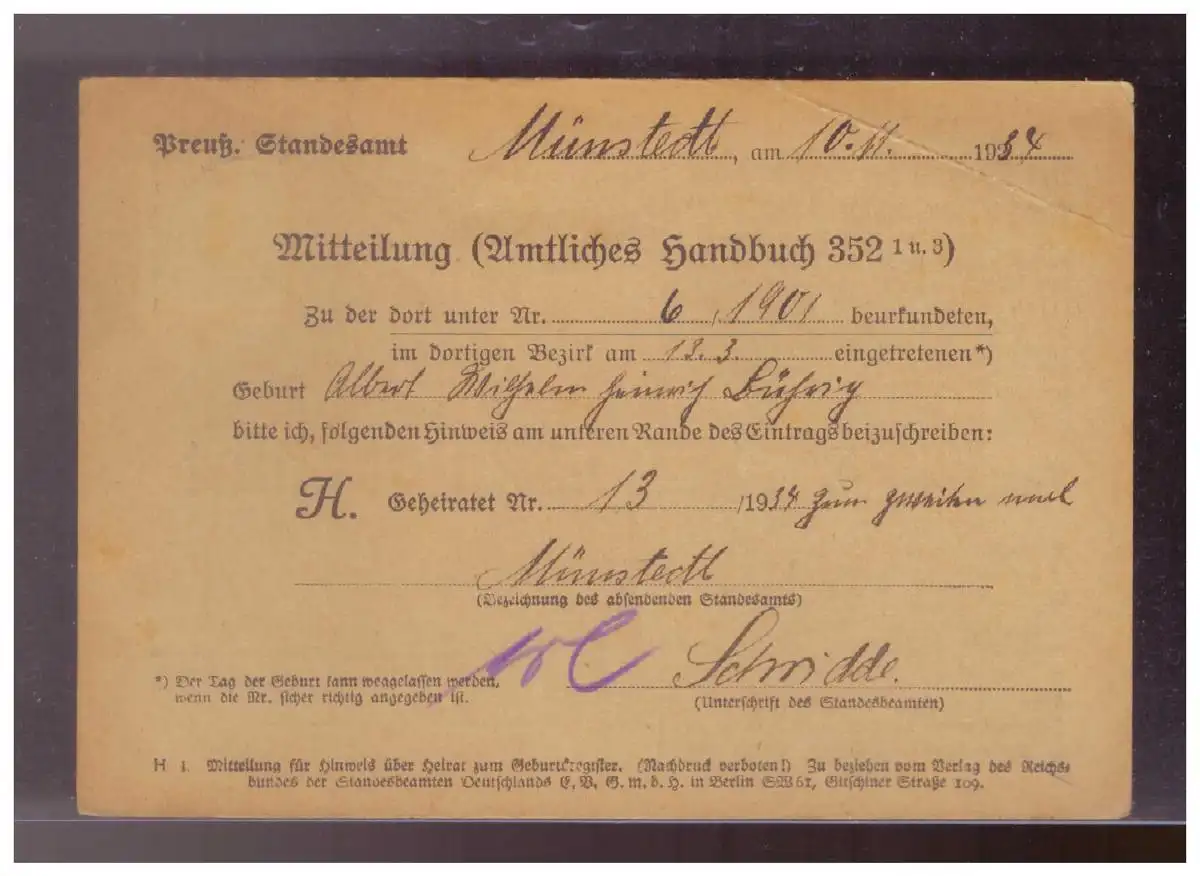 Preuß. Standesamt Münstedt, am 10. 11. 1934
Mitteilung (Amtliches Handbuch 352 1 u. 3)
Zu der dort unter Nr. 6 / 1901 beurkundeten,
im dortigen Bezirk am 13. 3. eingetretenen *)
Geburt Albert Wilhelm Heinrich Bührig
bitte ich, folgenden Hinweis am unteren Rande des Eintrags beizuschreiben:
H. Geheiratet Nr. 13 /1934 zum zweiten mal
Münstedt
(Bezeichnung des absendenden Standesamts)
Schridde.
(Unterschrift des Standesbeamten)
*) Der Tag der Geburt kann weggelassen werden,
wenn die Nr. sicher richtig angegeben ist.
H 1. Mitteilung für Hinweis über Heirat zum Geburtsregister. (Nachdruck verboten!) Zu beziehen vom Verlag des Reichs-
bundes der Standesbeamten Deutschlands E. V. G. m. b. H. in Berlin SW 61, Gitschiner Straße 109.